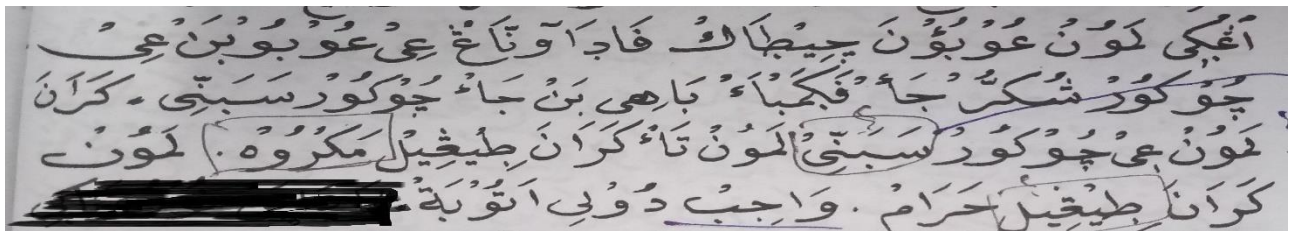 اَڠْكِي لَمَوُنْ عَوُبَوُنَ چِيْطَاكْ فَادَا وَتَاعْ عِيْ عَوُبَوُبَنْ عِيْ
چَوُكَوُرْ شُكُرْ جَأْ فَكَمْبَاءْ بَاهِى بَنْ جَاءْ چَوُكَوُرْ سَبَنّٓى. كَرَانَ
لَمَوُنْ عِيْ چَوُكَوُرْ سَبَنّٓى لَمَوُنْ تَاءْ كَرَانَ طِيْڠِيْلْ مَكْرُوْهْ. لَمَوُنْ
كَرَانَ طِيْڠِيْلْ حَرَامْ. وَاجِبْ دَوُلِى اَتَوْبَةْ